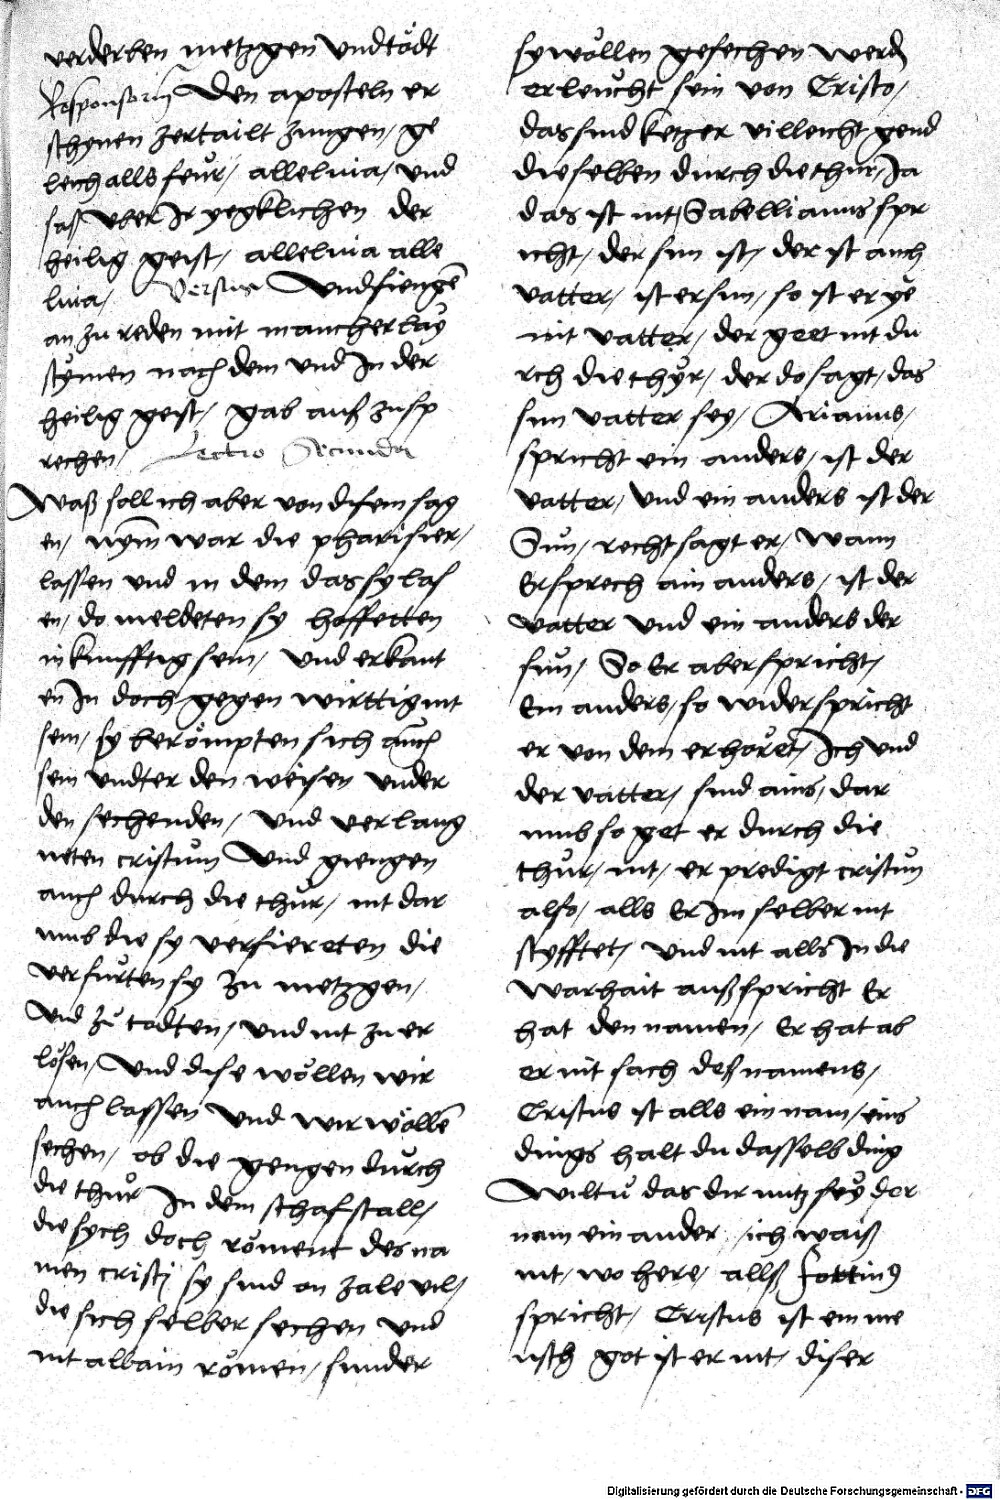 verderben metzgen Und tödt
Responsoriu Den aposteln er
schynen zertailt zungen, ge
leich alls feur, alleluia, und
saß Uber Ir yegklichen der
heilig geist, alleluia alle
luia, Versus Und fiengē
an zu reden mit mancherlay
stymen nach dem und In der
heilig geist, gab auß zusp
rechen, Lectio Secunda
Waß soll ich aber von disem sag
en, nym̄ war die pharisier,
lassen und in dem das sy las
en, do meldeten sy hoffetten
in kunfftig sein, und erkant
en In doch gegen wirttig nit
sein, sy berömpten sich auch
sein undter den weisen under
den sechenden, Und verlaug
neten cristum Und giengen
auch durch die thür, nit dar
umb die sy verfiereten die
verfurten sy zu metzgen,
Und zu todten, und nit zu er
lösen, Und dise wöllen wir
auch lassen Und wir wöllē
sechen, ob die gengen durch
die thür In dem schafstall,
die sych doch röment des na
men cristi sy sind on zale vil,
die sich selber sechen und
nit allain römen, sunder
sy wöllen gesechen werdē
erleücht sein von Cristo,
das sind ketzer villeicht gend
dieselben durch die thür, Ja
das ist nit, Sabellianus spr
icht, der sun ist, der ist auch
vatter, ist er sun, so ist er ye
nit vatter, der geet nit du
rch die thyr, der do sagt, das
sun vatter sey, Arianus,
spricht ein anders, ist der
vatter, Und ein anders ist der
Sun, recht sagt er, Wann
Er sprech ain anders, ist der
vatter Und ein anders der
sun, So Er aber spricht,
Ein anders, so widerspricht
er von dem er höret, Ich Und
der vatter, sind ains, dar
umb so get er durch die
thür, nit, er predigt cristum
also, alls Er Im selber nit
styfftet, Und nit alls In die
Warhait außspricht Er
hat den namen, Er hat ab
er nit sach deß namens,
Cristus ist alls ein nam, eins
dings halt du dasselb ding
Wiltu das dir nutz sey der
nam ein ander, ich waiß
nit, wo here, allß fottinus
spricht, Cristus ist ein me
nsch got ist er nit, diser
Digitalisierung gefördert durch die Deutsche Forschungsgemeinschaft - DFG